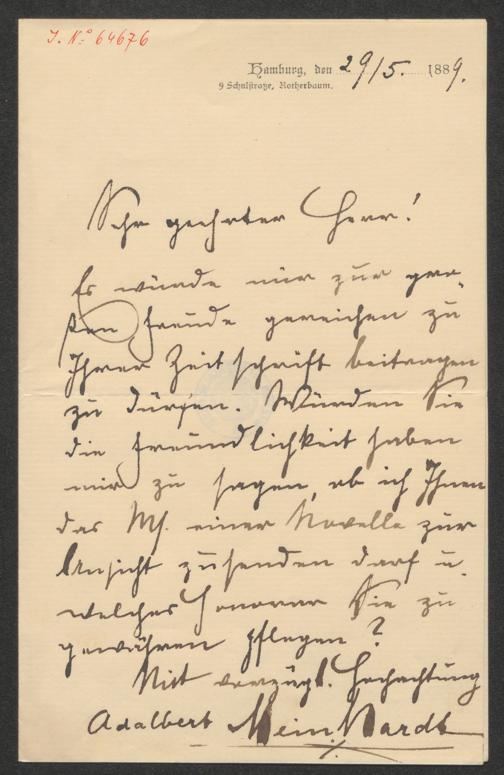 I. N.º 64676
Hamburg, den 29/5. 1889.
9 Schulstraße, Rotherbaum.
Sehr geehrter Herr!
Es würde mir zur gro-
ßen Freude gereichen zu
Ihrer Zeitschrift beitragen
zu dürfen. Würden Sie
die Freundlichkeit haben
mir zu sagen, ob ich Ihnen
das Ms. einer Novelle zur
Ansicht zusenden darf u.
welches Honorar Sie zu
gewähren pflegen?
Mit vorzügl. Hochachtung
Adalbert Meinhardt